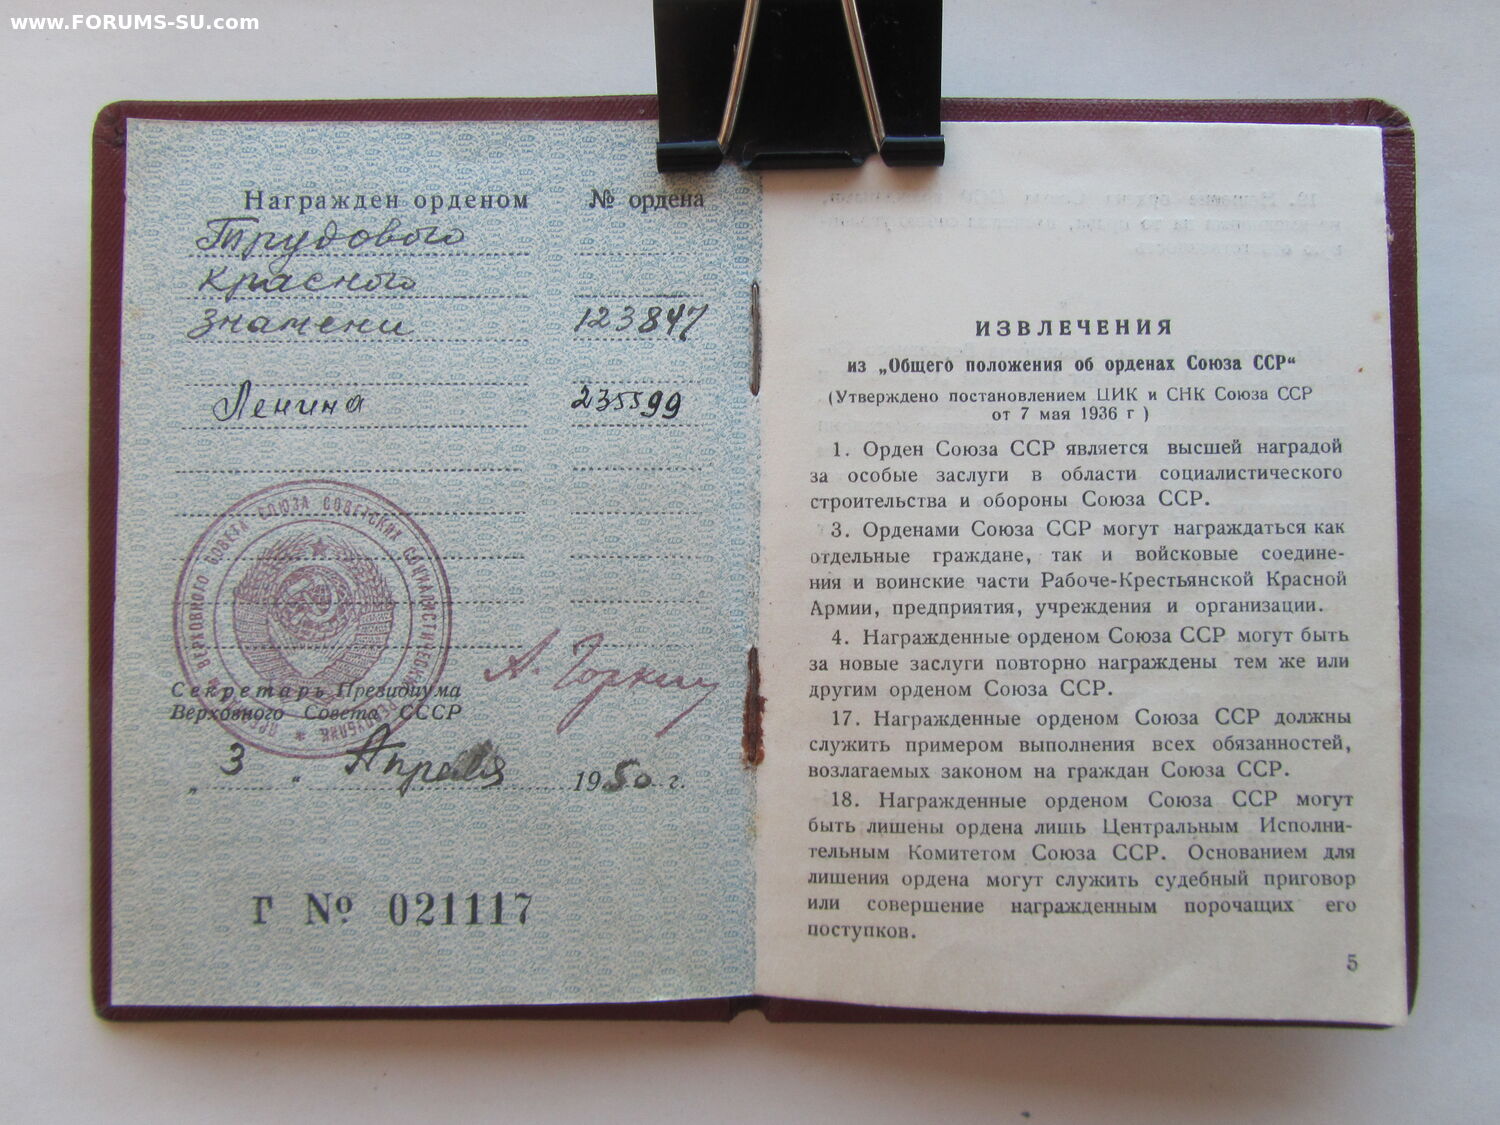 www.FORUMS-SU.com
Награжден орденом № ордена
Трудового
Красного
Знамени 123847
Ленина 235599
Секретарь Президиума
Верховного Совета СССР
А. Горкин
„ 3 " Апреля 1950 г.
Г № 021117
ИЗВЛЕЧЕНИЯ
из „Общего положения об орденах Союза ССР“
(Утверждено постановлением ЦИК и СНК Союза ССР
от 7 мая 1936 г )
1. Орден Союза ССР является высшей наградой
за особые заслуги в области социалистического
строительства и обороны Союза ССР.
3. Орденами Союза ССР могут награждаться как
отдельные граждане, так и войсковые соедине-
ния и воинские части Рабоче-Крестьянской Красной
Армии, предприятия, учреждения и организации.
4. Награжденные орденом Союза ССР могут быть
за новые заслуги повторно награждены тем же или
другим орденом Союза ССР.
17. Награжденные орденом Союза ССР должны
служить примером выполнения всех обязанностей,
возлагаемых законом на граждан Союза ССР.
18. Награжденные орденом Союза ССР могут
быть лишены ордена лишь Центральным Исполни-
тельным Комитетом Союза ССР. Основанием для
лишения ордена могут служить судебный приговор
или совершение награжденным порочащих его
поступков.
5
ВЕРХОВНОГО СОВЕТА СОЮЗА СОВЕТСКИХ СОЦИАЛИСТИЧЕСКИХ